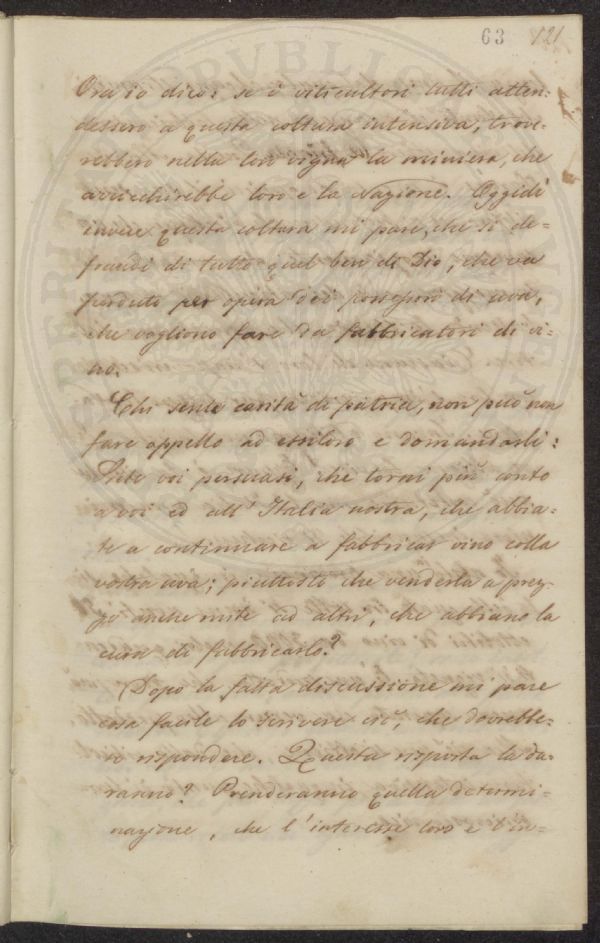 63 121
Ora io dico: se i viticultori tutti atten-
dessero a questa coltura intensiva, trove-
rebbero nella loro vigna la miniera, che
arricchirebbe loro e la Nazione. Oggidì
invece questa coltura mi pare, che si de=
fraudi di tutto quel ben di Dio, che va
perduto per opera dei possessori di uva,
che vogliono fare da fabbricatori di vi=
no.
Chi sente carità di patria, non può non
fare appello ad essiloro e domandarli:
Siete voi persuasi, che torni più conto
a voi ed all'Italia nostra, che abbia-
te a continuare a fabbricar vino colla
vostra uva; piuttosto che venderla a prez-
zo anche mite ad altri, che abbiano la
cura di fabbricarlo?
Dopo la fatta discussione mi pare
cosa facile lo scrivere ciò, che dovrebbe-
ro rispondere. Questa risposta la da-
ranno? Prenderanno quella determi-
nazione, che l'interesse loro e l'in=